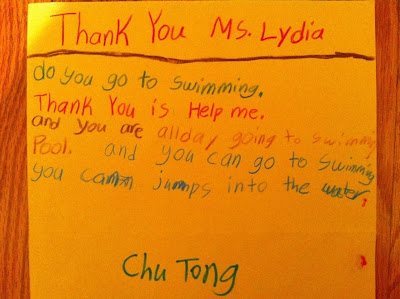 Thank You Ms. Lydia
do you go to swimming.
Thank You is Help me.
and You are allday going to swimming
Pool. and you can go to swimming
you can jumps into the water,
Chu Tong